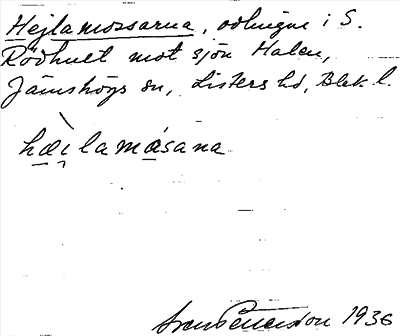 Hejlamossarna, odlingar i S.
Rödhult mot sjön Halen,
Jämshögs sn, Listers hd, Blek. l.
hæi̯lamåsana
Sven Benson 1936